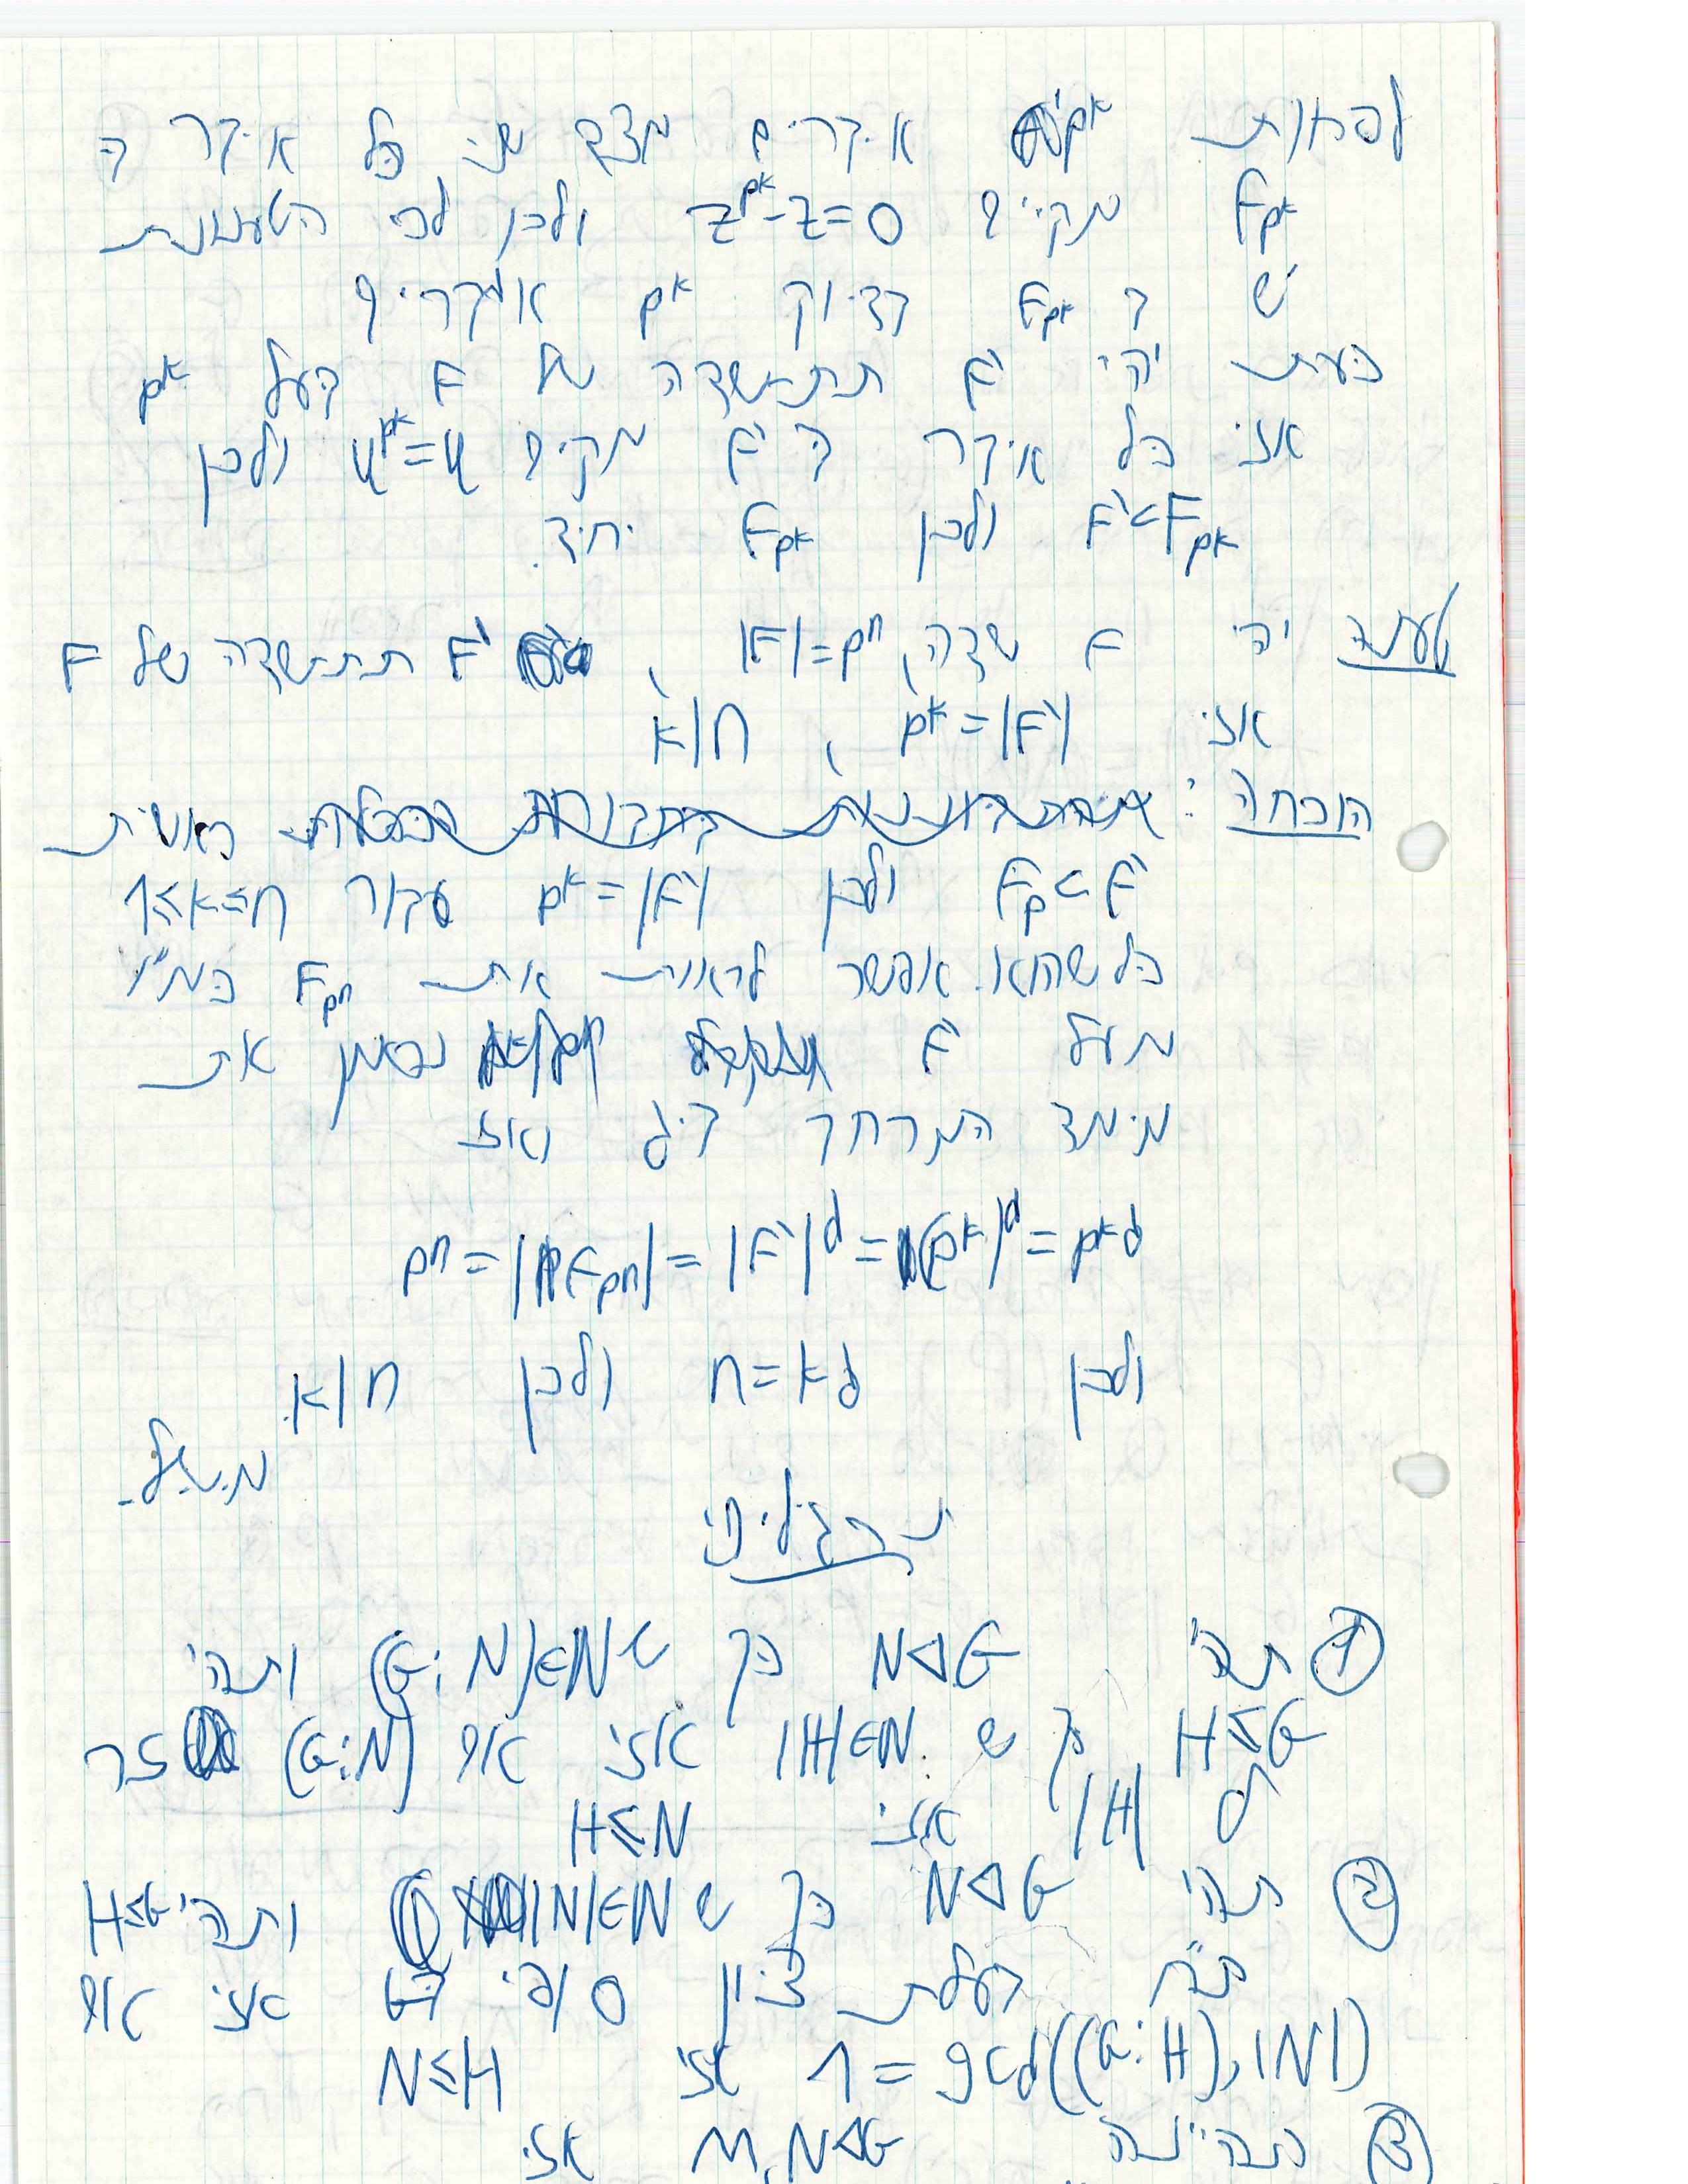 לפחות p^k איברים מצד שני כל איבר ב
F_{p^k} מקיים z^{p^k}-z=0 ולכן לפי הטענות
יש ב F_{p^k} בדיוק p^k איברים
כעת יהי F' תת שדה של F בעל p^k
אז כל איבר ב F' מקיים y^{p^k}=y ולכן
F'⊂F_{p^k} ולכן F_{p^k} יחיד.
טענה יהי F שדה, |F|=p^n, F' תת שדה של F
אז |F'|=p^k, k|n
הוכחה: ראשית
F_p⊂F' ולכן |F'|=p^k עבור 1≤k≤n
כלשהו. אפשר לראות את F_{p^n} כמ"ו
מעל F' נסמן את
מימד המרחב ב d ואז
p^n=|F_{p^n}|=|F'|^d=(p^k)^d=p^{kd}
ולכן n=kd ולכן k|n.
מ.ש.ל.
תרגילים
① תהי N⊲G כך ש (G:N)∈ℕ ותהי
H≤G כך ש |H|∈ℕ. אזי אם (G:N) זר
ל |H| אזי H≤N
② תהי N⊲G כך ש |N|∈ℕ ותהי H≤G
ת"ח בעלת ציון סופי ב G אזי אם
gcd((G:H),|N|)=1 אזי N≤H
③ תהיינה M,N⊲G אזי